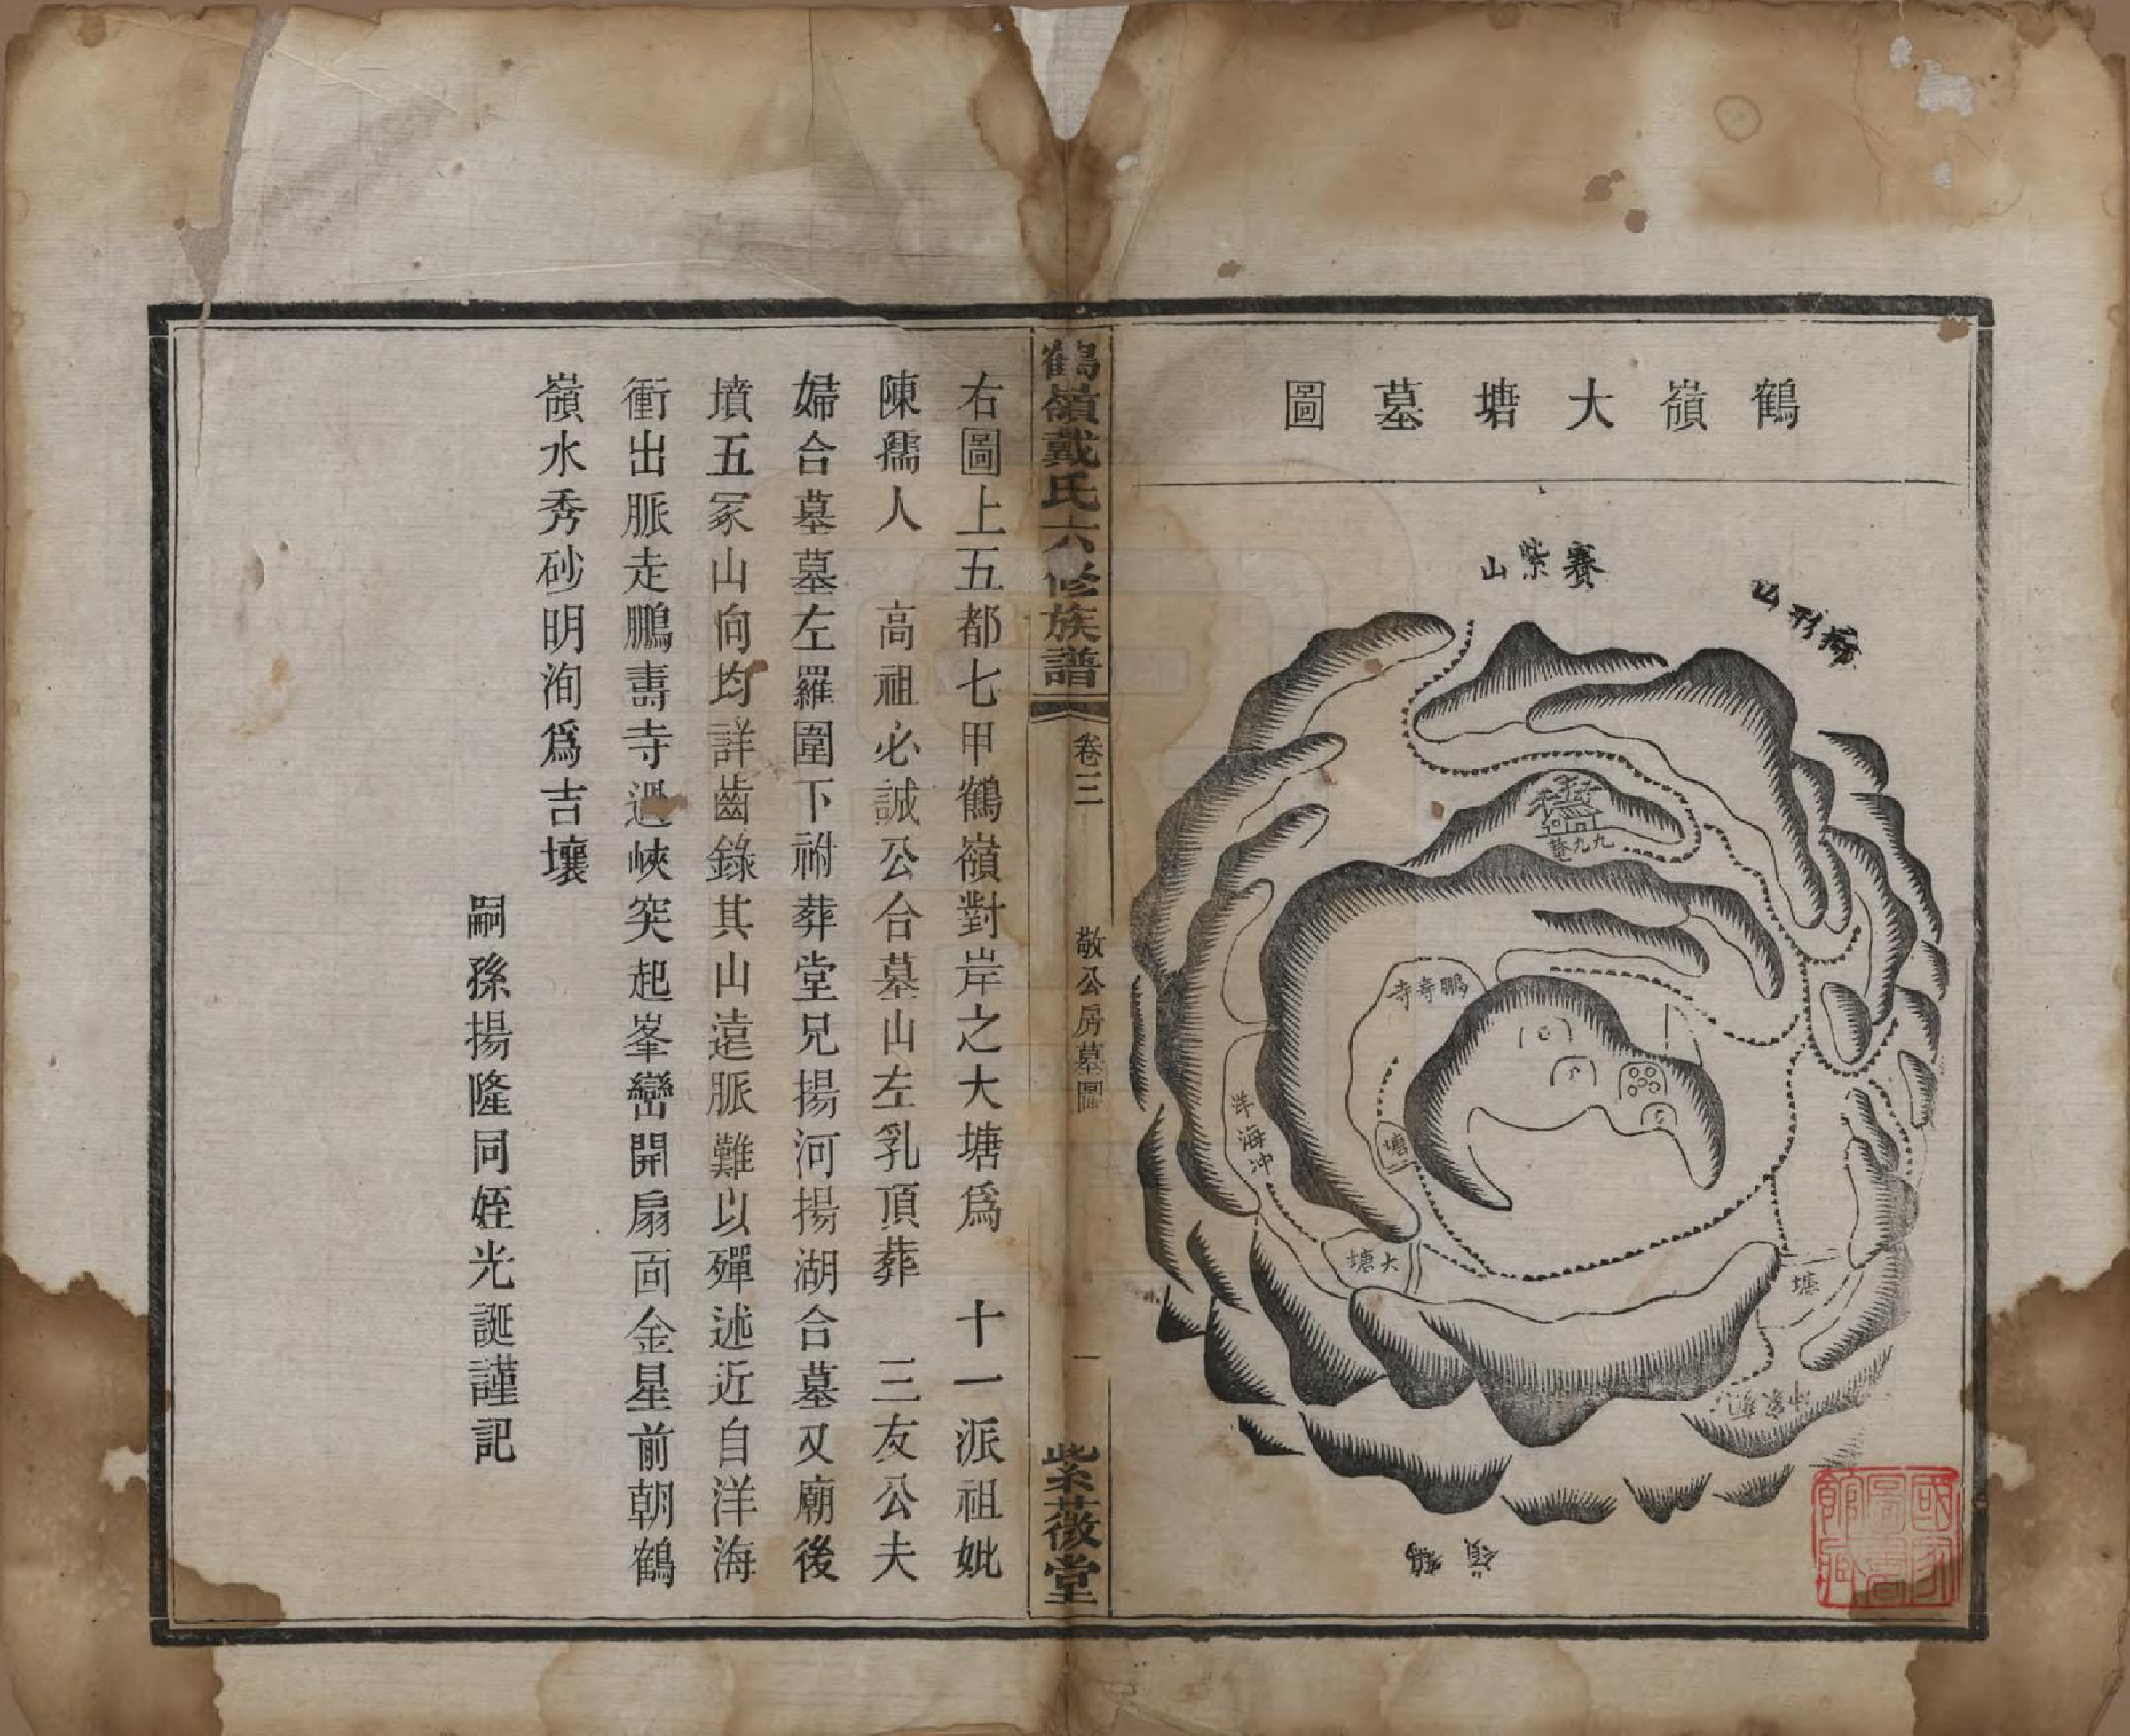 鶴嶺大塘墓圖
賽紫山
山形
九九菴
鵬壽寺
洋海冲
塘
大塘
塘
冲家
鶴嶺
國家圖書館藏
鶴嶺戴氏六修族譜
卷三
敬公房墓圖
一
紫薇堂
右圖上五都七甲鶴嶺對岸之大塘爲　十一派祖妣
陳孺人　高祖必誠公合墓山左乳頂葬　三友公夫
婦合墓墓左羅圍下祔葬堂兄揚河揚湖合墓又廟後
墳五冢山向均詳齒錄其山遠脈難以殫述近自洋海
衝出脈走鵬壽寺過峽突起峯巒開扇面金星前朝鶴
嶺水秀砂明洵爲吉壤
嗣孫揚隆同姪光誕謹記